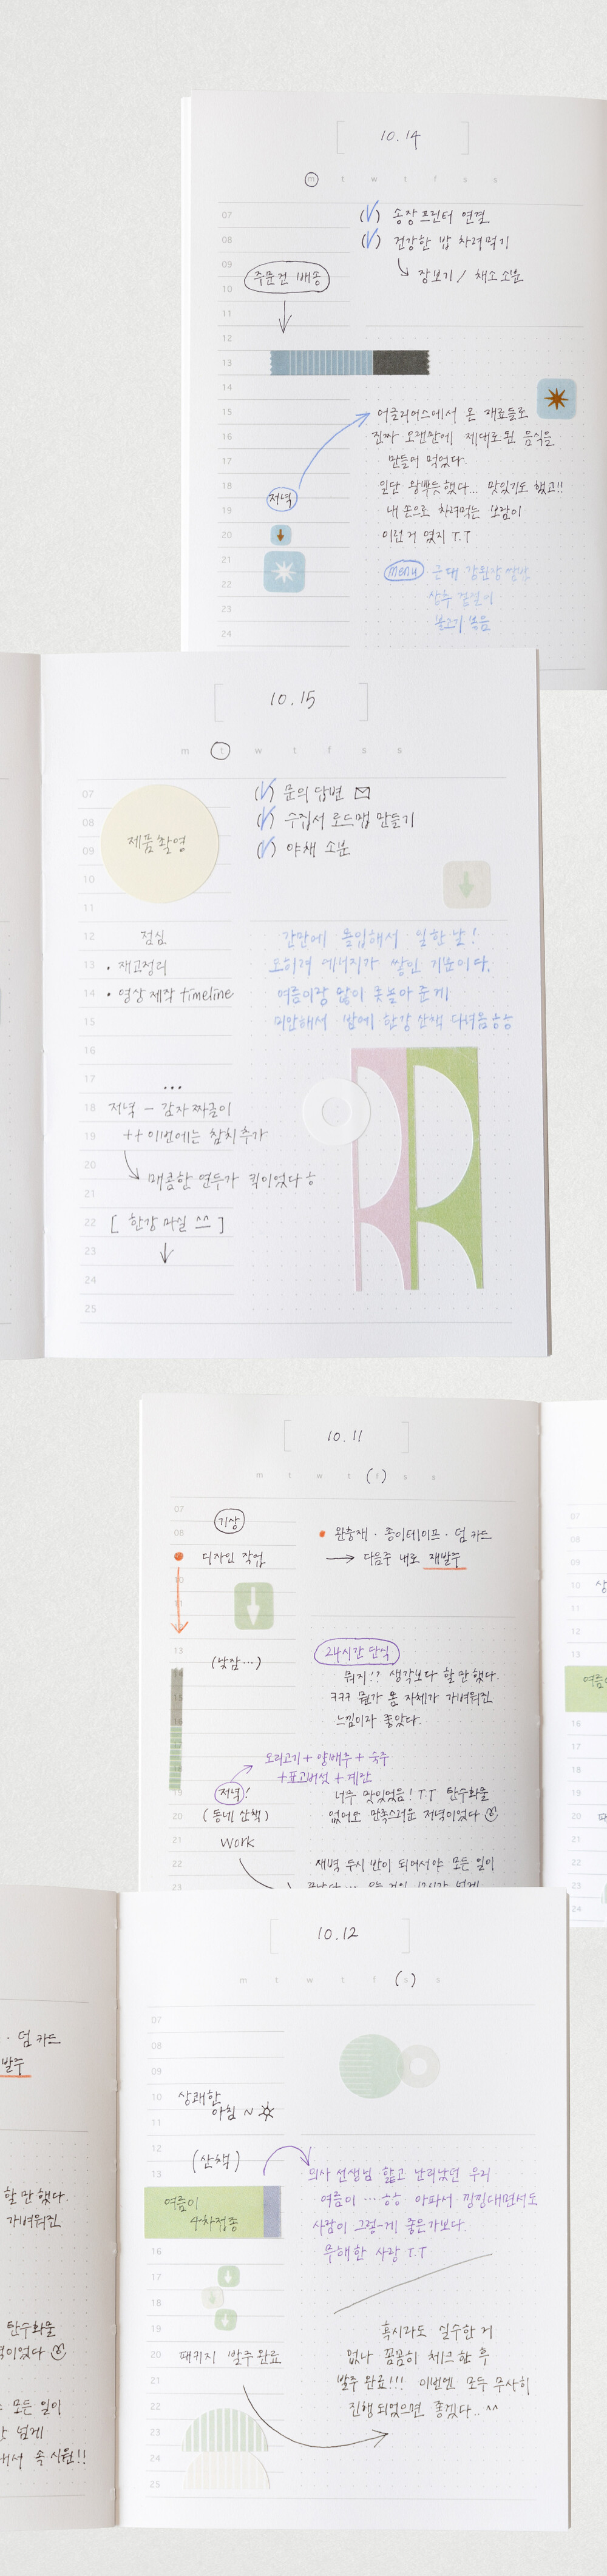 10.14
m t w t f s s
07
08
09
10
11
12
13
14
15
16
17
18
19
20
21
22
23
24
(√) 송장프린터 연결
(√) 건강한 밥 차려먹기
장보기 / 채소소분
주문건 배송
어글리어스에서 온 재료들로
진짜 오랜만에 제대로된 음식을
만들어 먹었다.
일단 왕뿌듯했다... 맛있기도 했고!!
내 손으로 차려먹는 보람이
이런거 였지 T.T
저녁
menu 근대 강된장 쌈밥
상추 겉절이
불고기 볶음
10.15
m t w t f s s
07
08
09
10
11
12
13
14
15
16
17
18
19
20
21
22
23
24
25
제품촬영
(√) 문의 답변
(√) 수집서 로드맵 만들기
(√) 야채 소분
점심
• 재고정리
• 영상 제작 timeline
간만에 몰입해서 일한 날!
도히려 에너지가 쌓인 기분이다.
여름이랑 많이 못놀아 준게
미안해서 밤에 한강 산책 다녀옴ㅎㅎ
...
저녁 – 감자짜글이
++ 이번에는 참치추가
매콤한 연두가 킥이었다ㅎ
[ 한강 마실 ^^ ]
10.11
m t w t (f) s s
07
08
10
13
15
19
20
21
22
23
기상
디자인 작업
• 완충재 · 종이테이프 · 덤 카드
→ 다음주 내로 재발주
(낮잠...)
24시간 단식
뭐지!? 생각보다 할만했다.
ㅋㅋㅋ 뭔가 몸 자체가 가벼워진
느낌이라 좋았다.
오리고기 + 양배추 + 숙주
+ 표고버섯 + 계란
저녁!
(동네 산책)
work
너무 맛있었음! T.T 탄수화물
없어도 만족스러운 저녁이었다
새벽 두시 반이 되어서야 모든 일이
10
11
12
13
16
19
20
21
22
23
24
여름
10.12
m t w t f (s) s
07
08
09
10
11
12
13
16
17
18
19
20
21
22
23
24
25
상쾌한
아침 ~
(산책)
여름이
4차접종
의사 선생님 핥고 난리났던 우리
여름이 ... ㅎㅎ 아파서 낑낑대면서도
사람이 그렇-게 좋은가보다.
무해한 사랑 T.T
패키지 발주완료
혹시라도 실수한 거
없나 꼼꼼히 체크한 후
발주 완료!!! 이번엔 모두 무사히
진행되었으면 좋겠다.. ^^
· 덤 카드
발주
할만했다.
가벼워진
탄수화물
모든 일이
넘게
속 시원!!